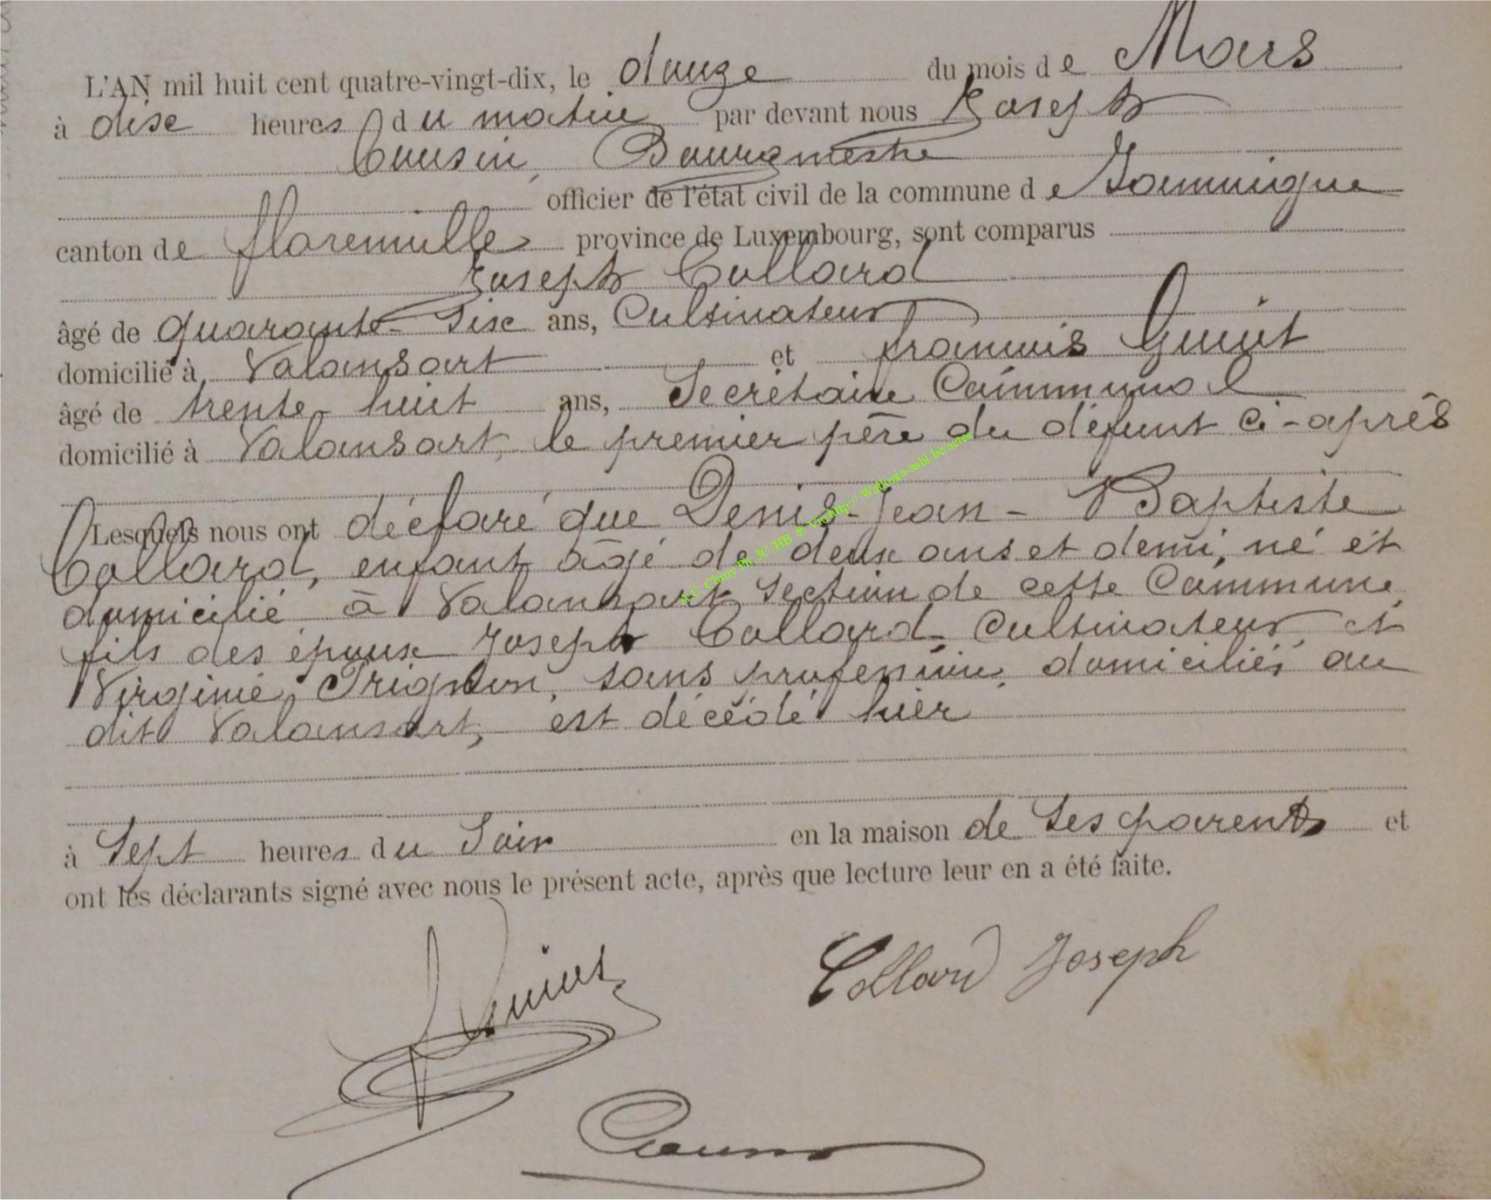 L'AN mil huit cent quatre-vingt-dix, le douze du mois de Mars
à dix heures du matin par devant nous Joseph
Cousin, Bourgmestre
officier de l'état civil de la commune de Jamoigne
canton de florenville province de Luxembourg, sont comparus
Joseph Collard
âgé de quarante-six ans, Cultivateur
domicilié à Valansart et françois Guiot
âgé de trente-huit ans, Secrétaire Communal
domicilié à Valansart, le premier père du défunt ci-après
Lesquels nous ont déclaré que Denis-Jean-Baptiste
Collard, enfant âgé de deux ans et demi, né et
domicilié à Valansart section de cette Commune,
fils des époux Joseph Collard Cultivateur et
Virginie Trignon, sans profession, domiciliés au
dit Valansart, est décédé hier
à Sept heures du Soir en la maison de ses parents et
ont les déclarants signé avec nous le présent acte, après que lecture leur en a été faite.
Collard Joseph